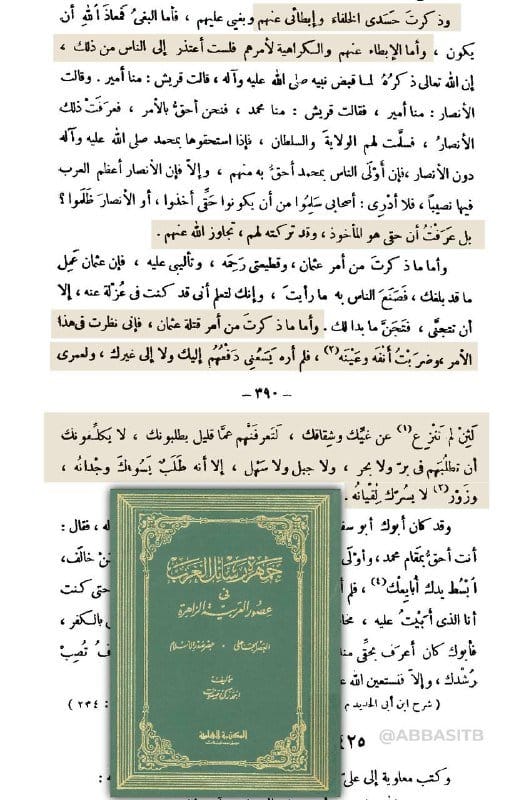 وذكرتَ حَسَدى الخلفاءَ وإبطائى عنهم وبغيي عليهم ، فأما البغىُ فمعاذَ اللهِ أن
يكون ، وأما الإبطاء عنهم والكراهية لأمرهم فلست أعتذر إلى الناس من ذلك ،
إن الله تعالى ذكرُهُ لما قبض نبيه صلى الله عليه وآله ، قالت قريش : منا أمير . وقالت
الأنصار : منا أمير ، فقالت قريش : منا محمد ، فنحن أحقُّ بالأمر ، فعرفَتْ ذلك
الأنصارُ ، فسلَّمت لهم الولايةَ والسلطان ، فإذا استحقوها بمحمد صلى الله عليه وآله
دون الأنصار ، فإن أَوْلَى الناس بمحمد أحقُّ به منهم ، وإلاّ فإن الأنصار أعظم العرب
فيها نصيبا ، فلا أدرى : أصحابى سَلِمُوا من أن يكونوا حَتَّى أخذوا ، أو الأنصارَ ظَلَموا ؟
بل عَرَفْتُ أن حتى هو المأخوذ ، وقد تركته لهم ، تجاوز الله عنهم .
وأما ما ذكرتَ من أمر عثمان ، وقطيعتى رَحِمَه ، وتأليبى عليه ، فإن عثمان عَمِل
ما قد بلغك ، فَصَنَعَ الناس به ما رأيتَ ، وإنك لتعلم أنى قد كنت فى عُزْلة عنه ، إلا
أن تتجنَّى ، فتَجَنَّ ما بدا لك . وأما ما ذكرتَ من أمر قتلة عثمان ، فإنى نظرت فى هذا
الأمر ، وضرَبْتُ أنفَه وعَيْنَه (٢) ، فلم أره يَسَعُنِى دَفْعُهُم إليك ولا إلى غيرك ، ولعمرى
— ٣٩٠ —
لَئِنْ لم تَنْزِع (١) عن غيِّك وشِقاقك ، لَتَعرفَنَّهم عمّا قليل يطلبونك ، لا يكلِّفونك
أن تطلُبَهم فى برّ ولا بحر ، ولا جبل ولا سَهْل ، إلا أنه طَلَبٌ يَسُوءُكَ وجْدانُه ،
وزَوْرٌ (٢) لا يسرّك لِقْيانُه .
وقد كان أبوك أبو سف
له ، فقال :
أنت أحقُّ بمقام محمد ، وأوْلَى
نْ خالَف ،
اُبْسُط يدك أبايعْك (٤) ، فلم أ
حتى كنت
أنا الذى أبَيْتُ عليه ، مخا
بالكفر ،
فأبوك كان أعرَفَ بحقِّى من
فُ تُصِبْ
رُشْدك ، وإلاّ فنستعين الله عل
( شرح ابن أبى الحديد م
: ٢٣٤ )
جمهرة رسائل العرب
فى
عصور العربية الزاهرة
العصر الجاهلى - عصر صدر الإسلام
تأليف
أحمد زكى صفوت
المكتبة العلمية
٤٢٥
@ABBASITB
وكتب معاوية إلى علىّ
ه :